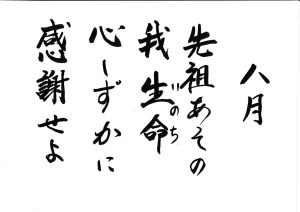 八月
先祖あその
我生命
いのち
心しずかに
感謝せよ